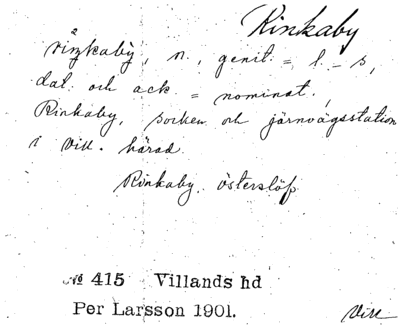 Rinkaby
riŋkabỳ, n., genit. = l. - s,
dat. och ack. = nominat.
Rinkaby, socken och järnvägsstation
i Vill. härad.
Rinkaby, österslöf
№ 415 Villands hd
Per Larsson 1901.
Vill